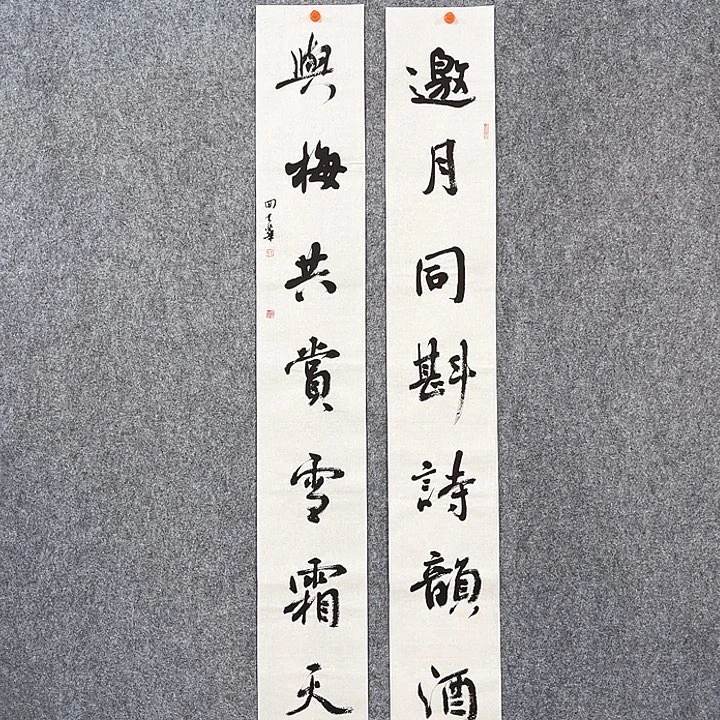 邀月同斟詩韻酒
與梅共賞雪霜天